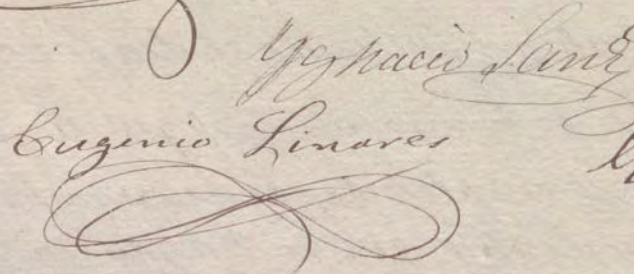 Ygnacio Sanz
Eugenio Linares